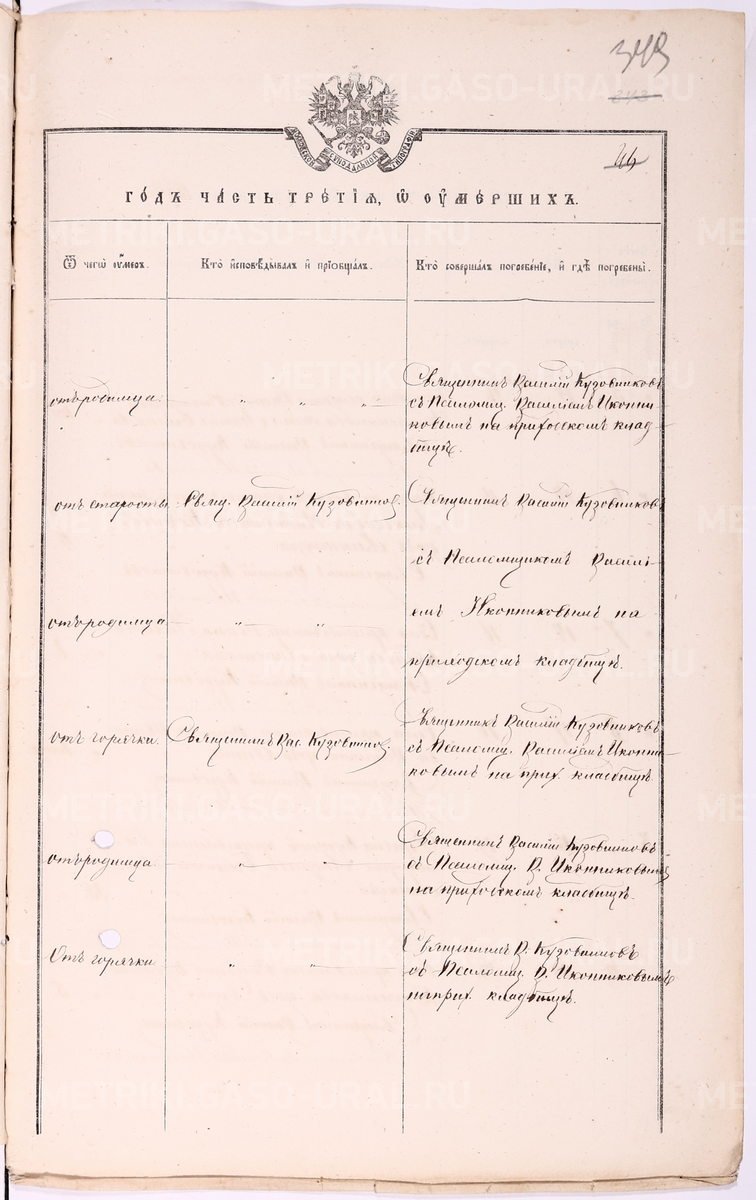 343
46
МОСКОВСКОЙ СѴНОДАЛЬНОЙ ТИПОГРАФІИ
ГО́ДЪ ЧА́СТЬ ТРЕ́ТІѦ, Ѡ҆ ОУ҆МЕ́РШИХЪ.
Ѿ чегѡ̀ оу҆́меръ.
Кто̀ и҆сповѣ́дывалъ и҆ прїѡбща́лъ.
Кто̀ соверша́лъ погребе́нїе, и҆ гдѣ̀ погребены̀.
отъ родимца.
„ „ „
Священникъ Василій Кузовниковъ
съ Псаломщ. Василіемъ Иконни-
ковымъ на приходскомъ клад-
бищѣ.
отъ старости.
Свящ. Василій Кузовников.
Священникъ Василій Кузовниковъ
съ Псаломщикомъ Василі-
емъ Иконниковымъ на
приходскомъ кладбищѣ.
отъ родимца
„ „
отъ горячки.
Священникъ Вас. Кузовников.
Священникъ Василій Кузовниковъ
съ Псаломщ. Василіемъ Иконни-
ковымъ на прих. кладбищѣ.
отъ родимца
„ „
Священникъ Василій Кузовниковъ
съ Псаломщ. В. Иконниковымъ
на приходскомъ кладбищѣ.
Отъ горячки
„ „
Священникъ В. Кузовниковъ
съ Псаломщ. В. Иконниковымъ
на прих. кладбищѣ.
METRIKI.GASO-URAL.RU